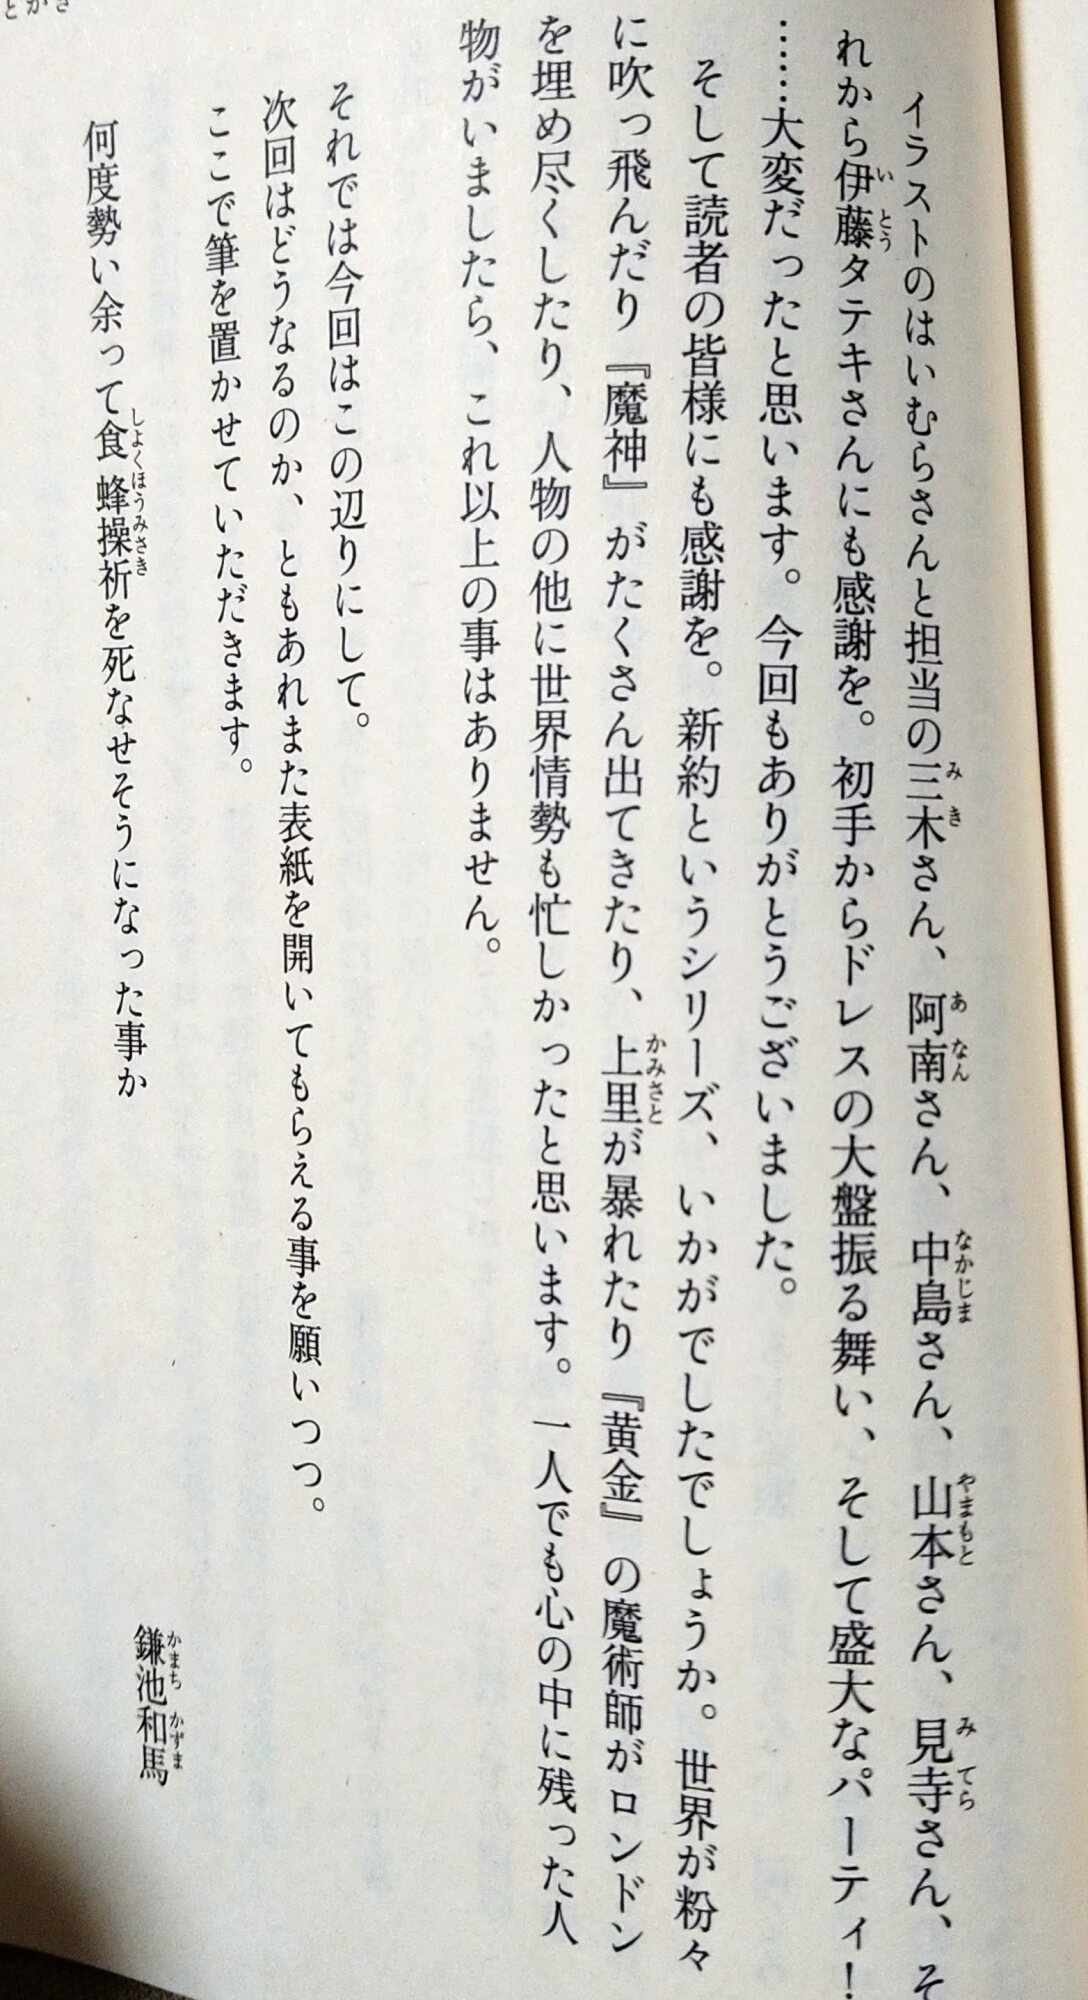 イラストのはいむらさんと担当の三木さん、阿南さん、中島さん、山本さん、見寺さん、そ
れから伊藤タテキさんにも感謝を。初手からドレスの大盤振る舞い、そして盛大なパーティ！
……大変だったと思います。今回もありがとうございました。
そして読者の皆様にも感謝を。新約というシリーズ、いかがでしたでしょうか。世界が粉々
に吹っ飛んだり『魔神』がたくさん出てきたり、上里が暴れたり『黄金』の魔術師がロンドン
を埋め尽くしたり、人物の他に世界情勢も忙しかったと思います。一人でも心の中に残った人
物がいましたら、これ以上の事はありません。
それでは今回はこの辺りにして。
次回はどうなるのか、ともあれまた表紙を開いてもらえる事を願いつつ。
ここで筆を置かせていただきます。
何度勢い余って食蜂操祈を死なせそうになった事か
鎌池和馬